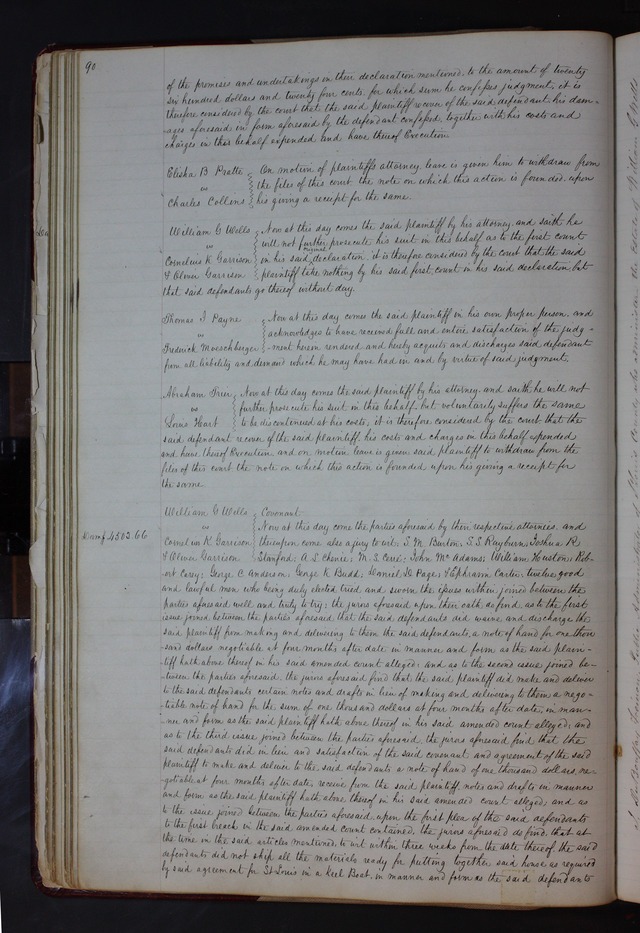 90
of the promises and undertakings in their declaration mentioned, to the amount of twenty
six hundred dollars and twenty four cents, for which sum he confesses judgment, it is
therefore considered by the court that the said plaintiff recover of the said defendant his dam-
ages aforesaid in form aforesaid by the defendant confessed, together with his costs and
charges in this behalf expended and have thereof Execution
Elisha B Pratte
vs
Charles Collins
On motion of plaintiffs attorney leave is given him to withdraw from
the files of this court the note on which this action is founded upon
his giving a receipt for the same.
William G Wells
vs
Cornelius K Garrison
& Oliver Garrison
Now at this day comes the said plaintiff by his attorney and saith he
will not further prosecute his suit in this behalf as to the first count
in his said declaration, it is therefore considered by the court that the said
plaintiff take nothing by his said first count in his said declaration but
that said defendants go thereof without day.
Thomas J Payne
vs
Frederick Moeschberger
Now at this day comes the said plaintiff in his own proper person, and
acknowledges to have received full and entire satisfaction of the judg-
ment herein rendered and hereby acquits and discharges said defendant
from all liability and demand which he may have had in and by virtue of said judgment.
Abraham
vs
Louis Hart
Now at this day comes the said plaintiff by his attorney and saith he will not
further prosecute his suit in this behalf but voluntarily suffers the same
to be discontinued at his costs, it is therefore considered by the court that the
said defendant recover of the said plaintiff his costs and charges in this behalf expended
and have thereof Execution, and on motion leave is given said plaintiff to withdraw from the
files of this court the note on which this action is founded upon his giving a receipt for
the same.
Dam $4503.66
William G Wells
vs
Cornelius K Garrison
& Oliver Garrison
Covenant
Now at this day come the parties aforesaid by their respective attornies, and
thereupon come also a jury to wit; S. M. Burton, S. S. Rayburn, Joshua R
Stanford, A S Chenie, M. S. Cerre, John McAdams, William Huston, Rob-
ert Corey, George C Anderson, George K Budd, Daniel D Page, & Ephraim Carter, twelve good
and lawful men who being duly elected tried and sworn the issues within joined between the
parties aforesaid well and truly to try; the jurors aforesaid upon their oath do find, as to the first
issue joined between the parties aforesaid that the said defendants did waive and discharge the
said plaintiff from making and delivering to them the said defendants, a note of hand for one thou-
sand dollars negotiable at four months after date in manner and form as the said plain-
tiff hath above thereof in his said amended count alleged; and as to the second issue joined be-
tween the parties aforesaid, the jurors aforesaid find that the said plaintiff did make and deliver
to the said defendants certain notes and drafts in lieu of making and delivering to them a nego-
tiable note of hand for the sum of one thousand dollars at four months after date, in man-
ner and form as the said plaintiff hath above thereof in his said amended count alleged; and
as to the third issue joined between the parties aforesaid, the jurors aforesaid find that the
said defendants did in lieu and satisfaction of the said covenant and agreement of the said
plaintiff to make and deliver to the said defendants a note of hand of one thousand dollars, ne-
gotiable at four months after date, receive from the said plaintiff notes and drafts in manner
and form as the said plaintiff hath above thereof in his said amended count alleged, and as
to the issue joined between the parties aforesaid upon the first plea of the said defendants
to the first breach in the said amended count contained, the jurors aforesaid do find, that at
the time in the said articles mentioned, to wit within three weeks from the date thereof the said
defendants did not ship all the materials ready for putting together said house as required
by said agreement for St Louis in a Keel Boat, in manner and form as the said defendants